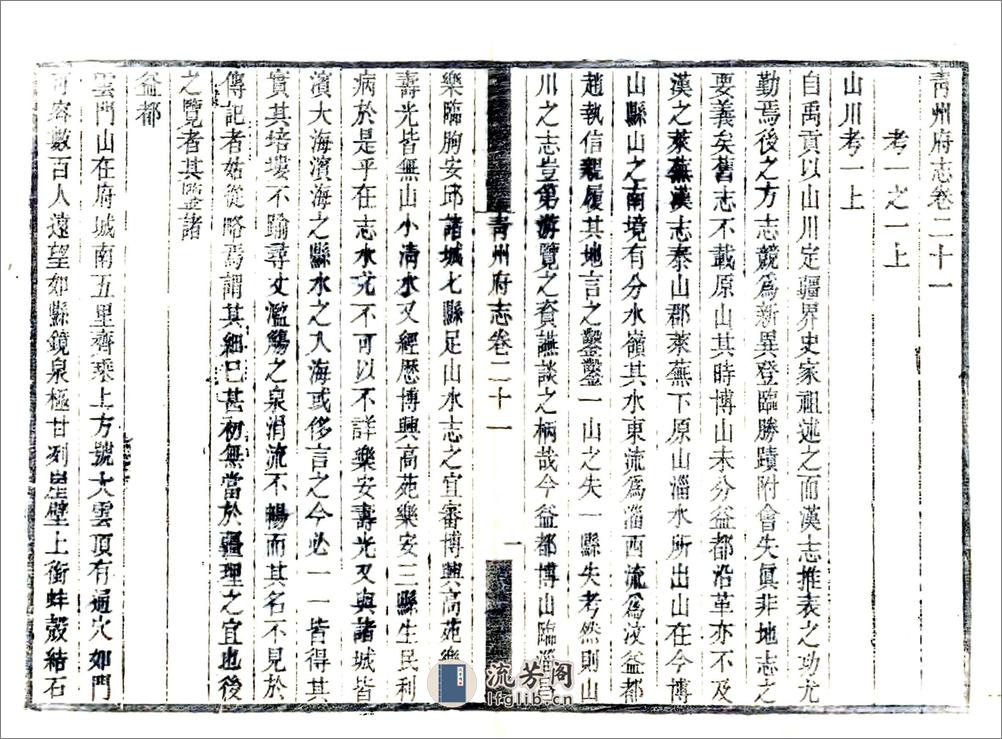 青州府志卷二十一
考一之一上
山川考一上
自禹貢以山川定疆界史家祖述之而漢志推表之功尤
勤焉後之方志競爲新異登臨勝蹟附會失眞非地志之
要義矣舊志不載原山其時博山未分益都沿革亦不及
漢之萊蕪漢志泰山郡萊蕪下原山淄水所出山在今博
山縣山之南境有分水嶺其水東流爲淄西流爲汶益都
趙執信親履其地言之鑿鑿一山之失一縣失考然則山
川之志豈第游覽之資讌談之柄哉今益都博山臨淄昌
樂臨朐安邱諸城七縣足山水志之宜審博興高苑樂安
壽光皆無山小淸水又經歷博興高苑樂安三縣生民利
病於是乎在志水尤不可以不詳樂安壽光又與諸城皆
濱大海濱海之縣水之入海或侈言之今必一一皆得其
實其培塿不踰尋丈濫觴之泉涓流不暢而其名不見於
傳記者姑從略焉謂其細已甚初無當於疆理之宜也後
之覽者其鑒諸
益都
雲門山在府城南五里齊乘上方號大雲頂有通穴如門
可容數百人遠望如縣鏡泉極甘冽崖壁上銜蚌殼結石
青州府志卷二十一
一
流芳阁
lfglib.cn